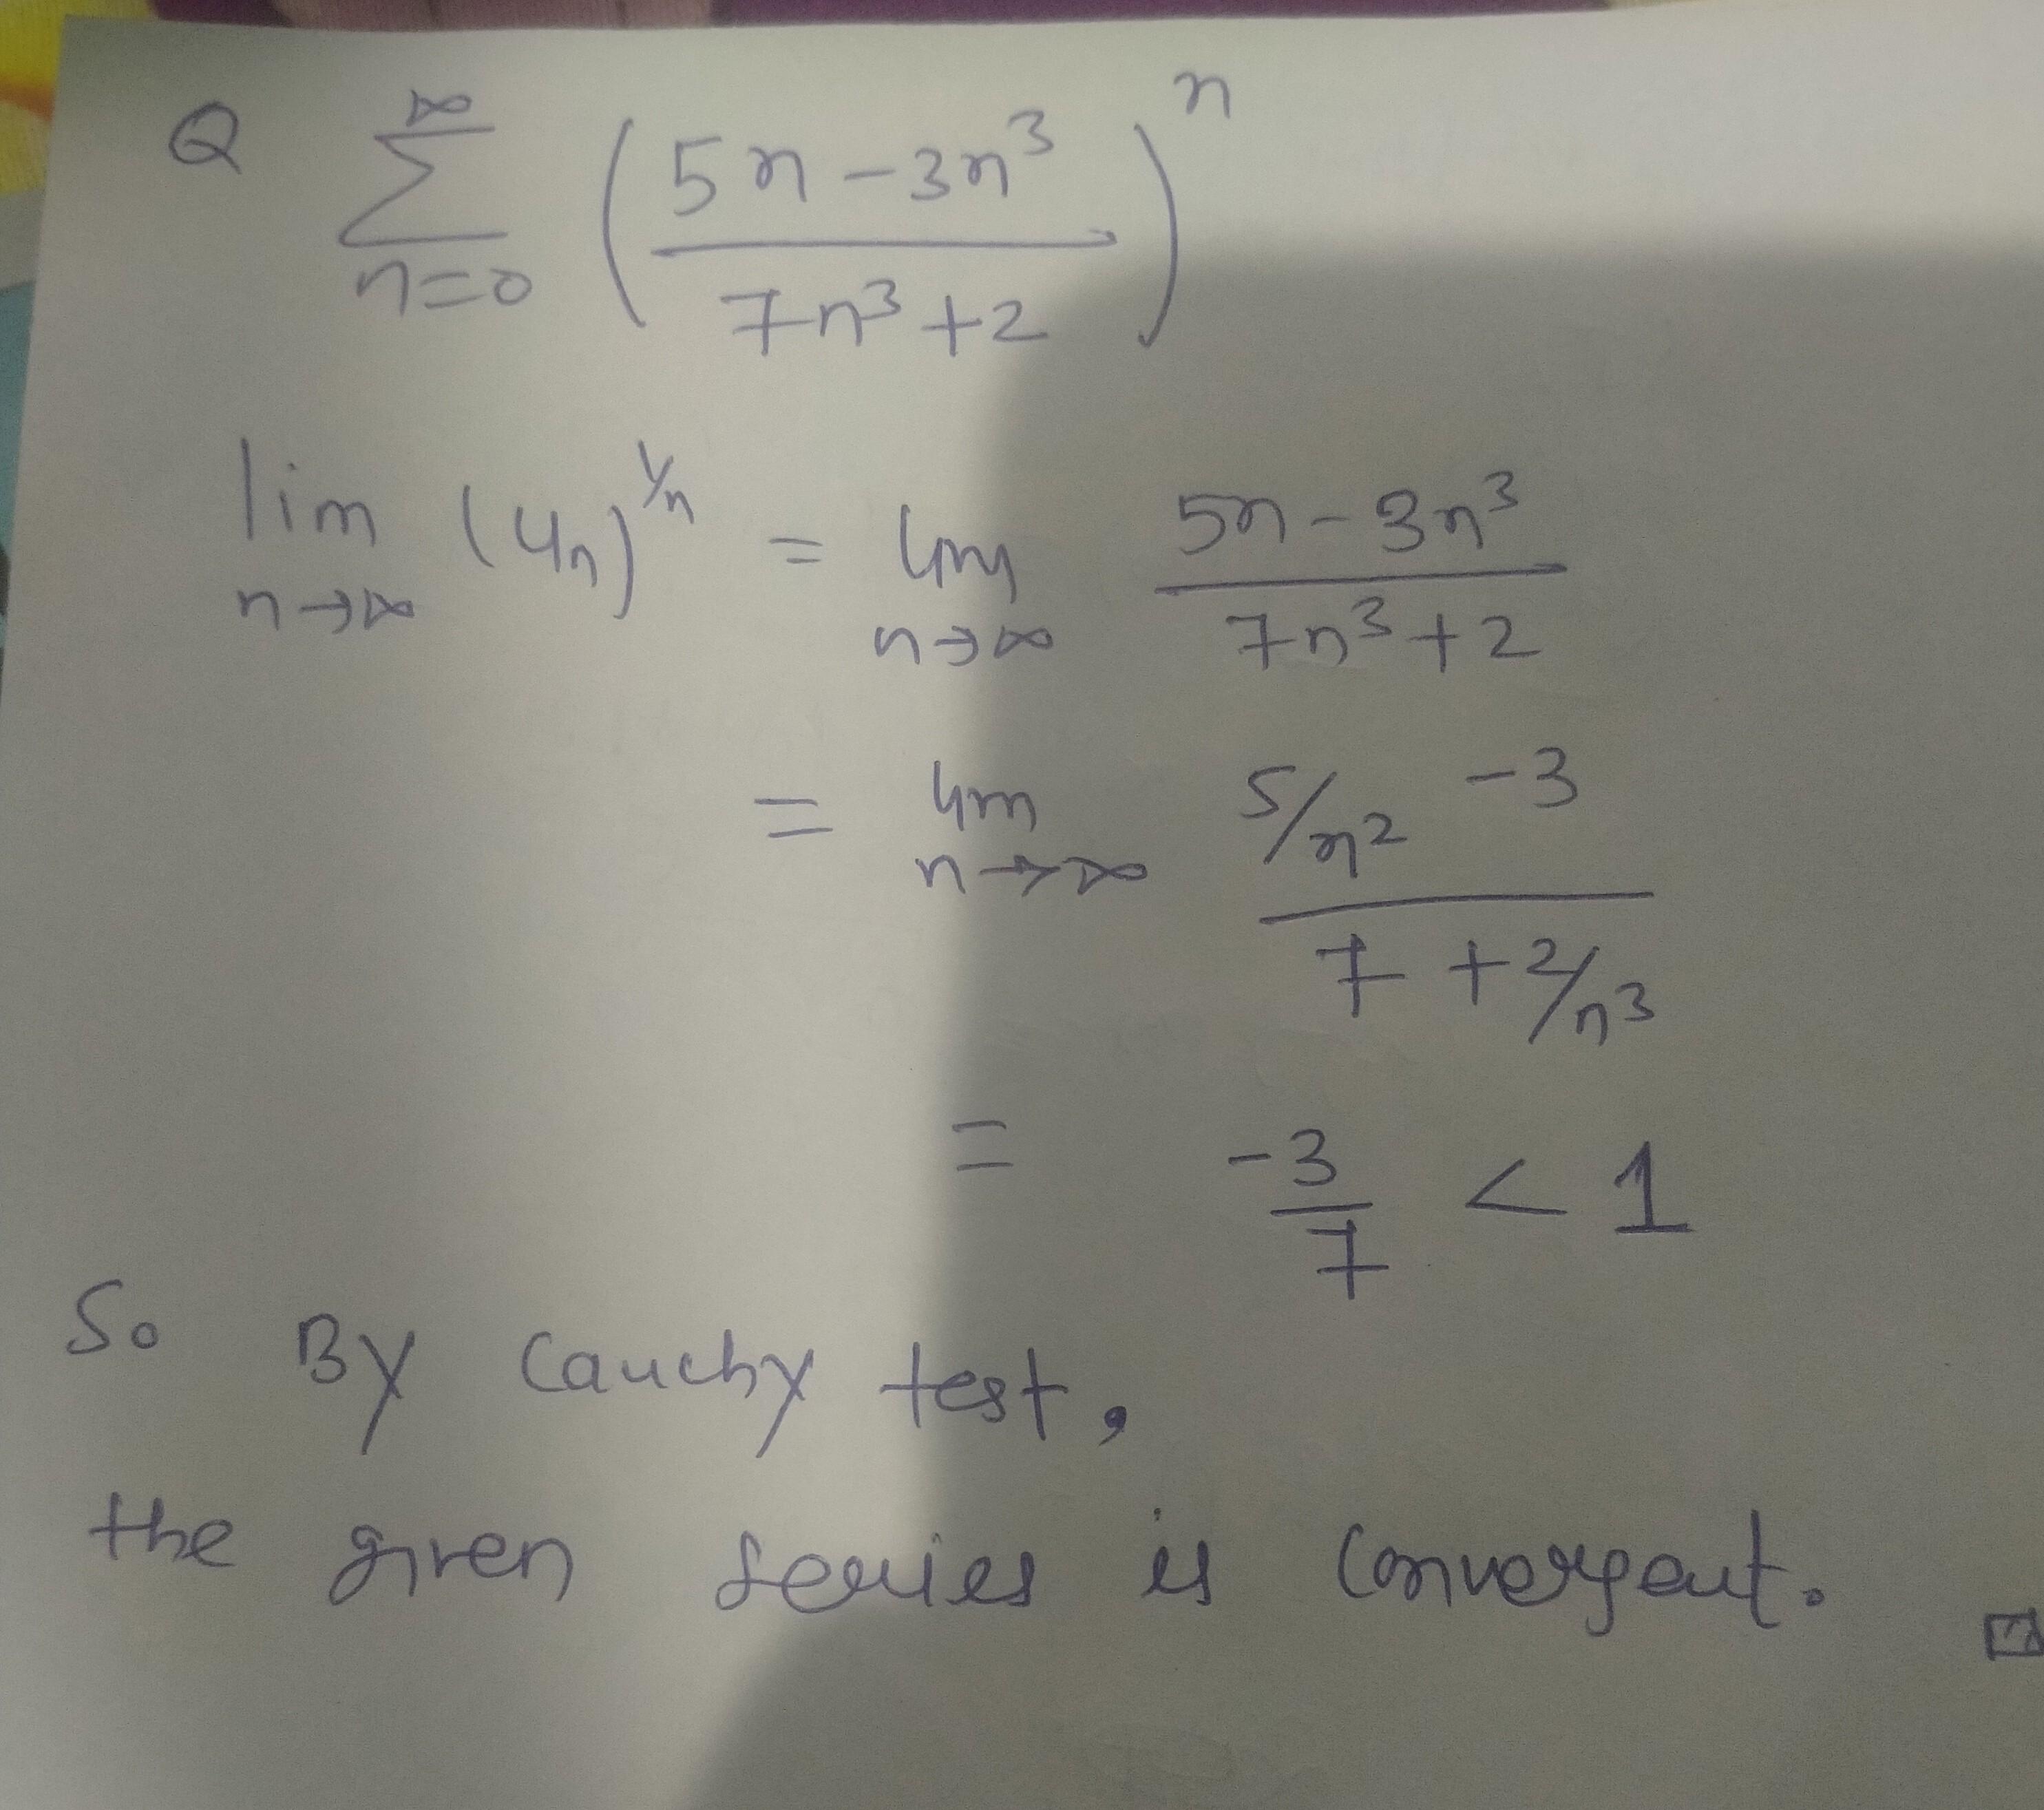 Q ∑_{n=0}^{∞} ( (5n-3n³)/(7n³+2) )^n
lim_{n→∞} (u_n)^{1/n} = lim_{n→∞} (5n-3n³)/(7n³+2)
= lim_{n→∞} (5/n² -3)/(7+2/n³)
= -3/7 < 1
So By Cauchy test,
the given series is convergent.